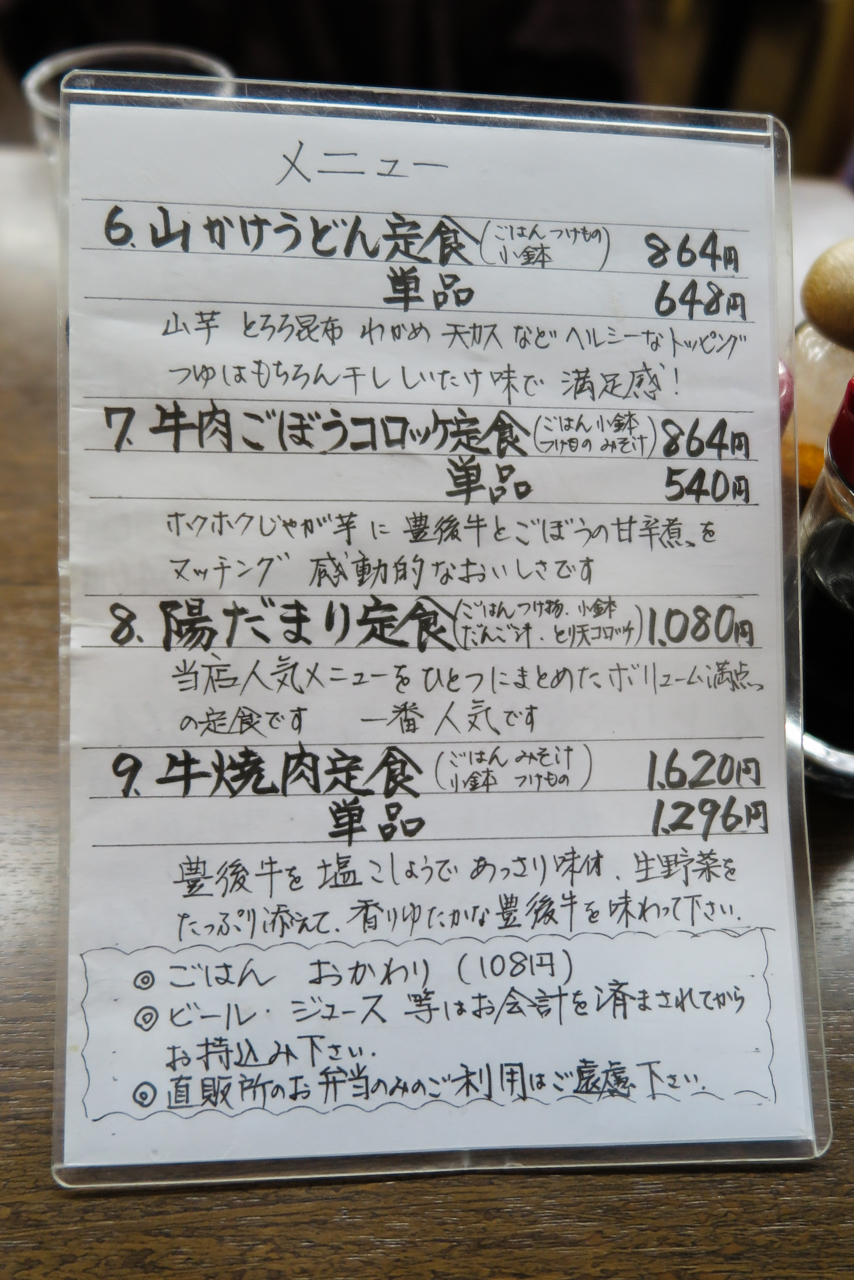 メニュー
6. 山かけうどん定食(ごはん つけもの 小鉢) 864円
単品 648円
山芋 とろろ昆布 わかめ 天カス など ヘルシーなトッピング
つゆはもちろん干ししいたけ味で 満足感!
7. 牛肉ごぼうコロッケ定食(ごはん 小鉢 つけもの みそ汁) 864円
単品 540円
ホクホクじゃが芋 に 豊後牛とごぼうの甘辛煮を
マッチング 感動的なおいしさです
8. 陽だまり定食(ごはん つけ物、小鉢 だんご汁、とり天コロッケ) 1.080円
当店人気メニューをひとつにまとめたボリューム満点
の定食です 一番人気です
9. 牛焼肉定食(ごはん みそ汁 小鉢 つけもの) 1.620円
単品 1.296円
豊後牛を 塩こしょうで あっさり味付、生野菜を
たっぷり添えて、香りゆたかな豊後牛を味わって下さい.
◎ ごはん おかわり (108円)
◎ ビール・ジュース 等はお会計を済まされてから
お持込み下さい.
◎ 直販所のお弁当のみのご利用はご遠慮下さい.